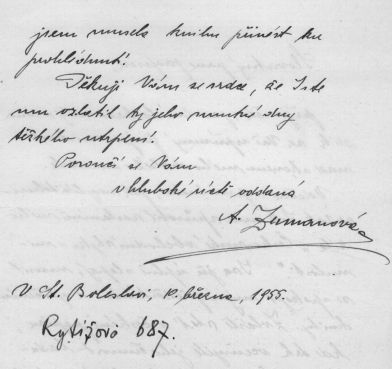 jsem musela knihu přinést ku
prohlédnutí.
Děkuji Vám ze srdce, že jste
mu ozlatil ty jeho smutné dny
těžkého utrpení.
Poroučí se Vám
v hluboké úctě oddaná
A. Zemanová
V St. Boleslavi, března, 1955.
Rytířova 687.